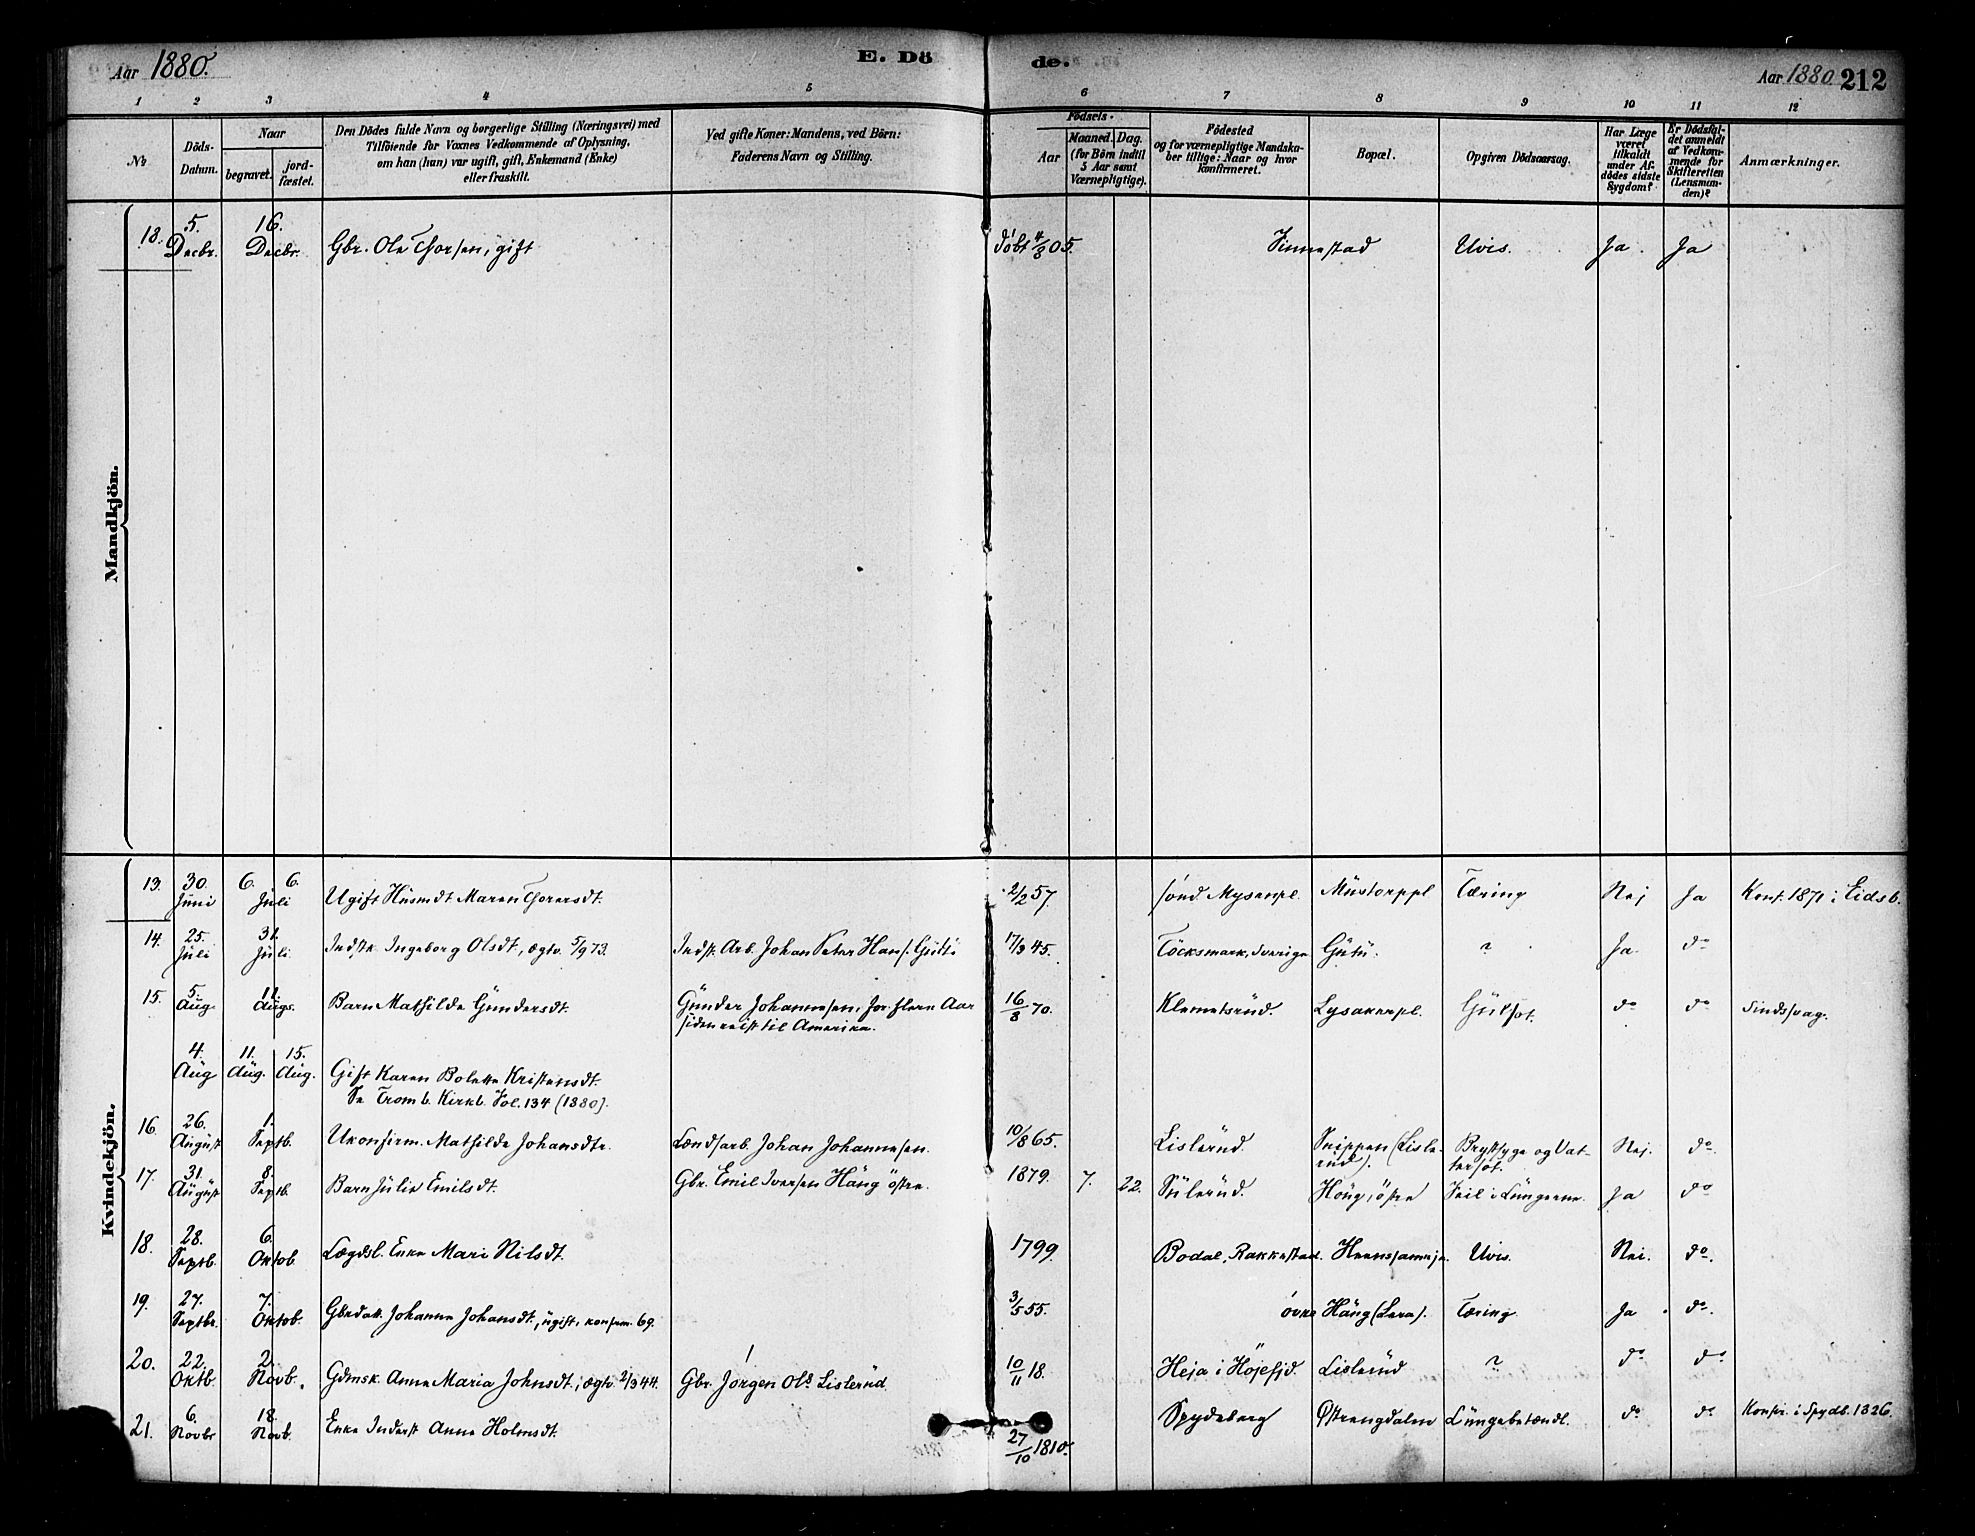 Aar 1880.
E. Dö
de.
Aar 1880. 212
1 2 3 4 5 6 7 8 9 10 11 12
No
Döds-
Datum.
Naar
begravet.
jord-
fæstet.
Den Dödes fulde Navn og borgerlige Stilling (Næringsvei) med
Tilföiende for Voxnes Vedkommende af Oplysning,
om han (hun) var ugift, gift, Enkemand (Enke)
eller fraskilt.
Ved gifte Koner: Mandens, ved Börn:
Faderens Navn og Stilling.
Födsels-
Aar
Maaned. Dag.
(for Börn indtil
5 Aar samt
Værnepligtige).
Födested
og for værnepligtige Mandska-
ber tillige: Naar og hvor
konfirmeret.
Bopæl.
Opgiven Dödsaarsag.
Har Læge
været
tilkaldt
under Af-
dödes sidste
Sygdom?
Er Dödsfal-
det anmeldt
af Vedkom-
mende for
Skifteretten
(Lensman-
den)?
Anmærkninger.
Mandkjön.
18. 5. Decbr. 16. Decbr. Gbr. Ole Thorsen, gift döbt 4/8 05. Finnestad Uvis. Ja. Ja
Kvindekjön.
13. 30. Juni 6. 6. Juli Ugift Husmdt Maren Thoresdt. 2/2 57. sönd. Mysenpl. Mustorppl Tæring Nej Ja Konf. 1871 i Eidsb.
14. 25. Juli 31. Juli. Indstk. Ingeborg Olsdt, ægtv. 5/9 73. Indst. Arb. Johan Peter Hans. Gutu 17/9 45. Töcksmark, Sverige Gutu. ? Ja. do
15. 5. Aug. 11. Augs. Barn Mathilde Gundersdt. Gunder Johannesen, for flere Aar 16/8 70. Klemetsrud. Lysakerpl. Gulsot. do do Sindssvag.
siden reist til Amerika.
4. Aug 11. Aug. 15. Aug. Gift Karen Bolette Kristensdt.
Se Tromb. Kirkb. Fol. 134 (1880).
16. 26. August 1. Septb. Ukonfirm. Mathilde Johansdtr. Landsarb. Johan Johannesen. 10/8 65. Lislerud. Snippen (Lisle-
rud). Brystsyge og Vat-
tersot. Nej. do.
17. 31. August 8. Septb. Barn Julie Emilsdt. Gbr. Emil Iversen Haug östre. 1879. 7. 22. Sulerud. Haug, östre Feil i Lungerne. Ja do
18. 28. Septb. 6. Oktob. Lægdsl. Enke Mari Nilsdt. 1799. Bodal, Rakkestad. Uvis. Nei. do.
19. 27. Septbr. 7. Oktob. Gbrdatt. Johanne Johansdt., ugift, konfirm. 69. 3/5 55. övre Haug (Lera). Tæring Ja. do.
20. 22. Oktb. 2. Novb. Gdmsk. Anne Maria Johnsdt., ægtv. 2/3 44. Gbr. Jörgen Ols. Lislerud 10/11 18. Heja i Höjefjd. Lislerud ? do do
21. 6. Novbr 18. Novb. Enke Inderst Anne Holmsdt. 27/10 1810. Spydeberg Östrengdalen Lungebetændl. do do Konfir. i Spydb. 1826.